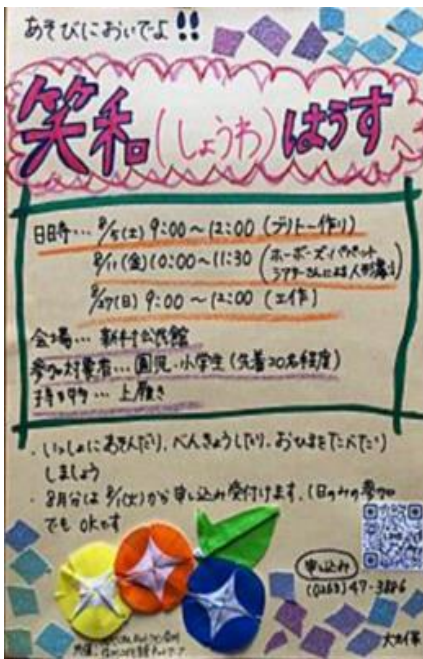 あそびにおいでよ!!
笑和(しょうわ)はうすへ
日時… 8/5(土) 9:00〜12:00 (ブリトー作り)
8/11(金) 10:00〜11:30 (ホーボーズ・パペットシアターさんによる人形劇)
8/27(日) 9:00〜12:00 (工作)
会場… 新村公民館
参加対象者… 園児・小学生(先着20名程度)
持ち物… 上履き
・いっしょにあそんだり、べんきょうしたり、おひるをたべたり
しましょう
・8月分は8/1(火)から申し込み受付けます。1日のみの参加
でもOKです
申し込み